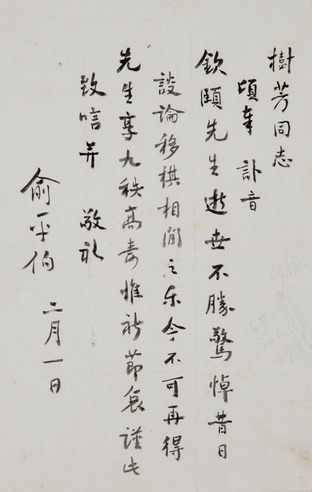 樹芳同志
頃奉 訃音
欽頤先生逝世不勝驚悼昔日
談論移棋相閒之乐今不可再得
先生享九秩高壽惟祈節哀謹此
致唁并 敬礼
俞平伯 二月一日